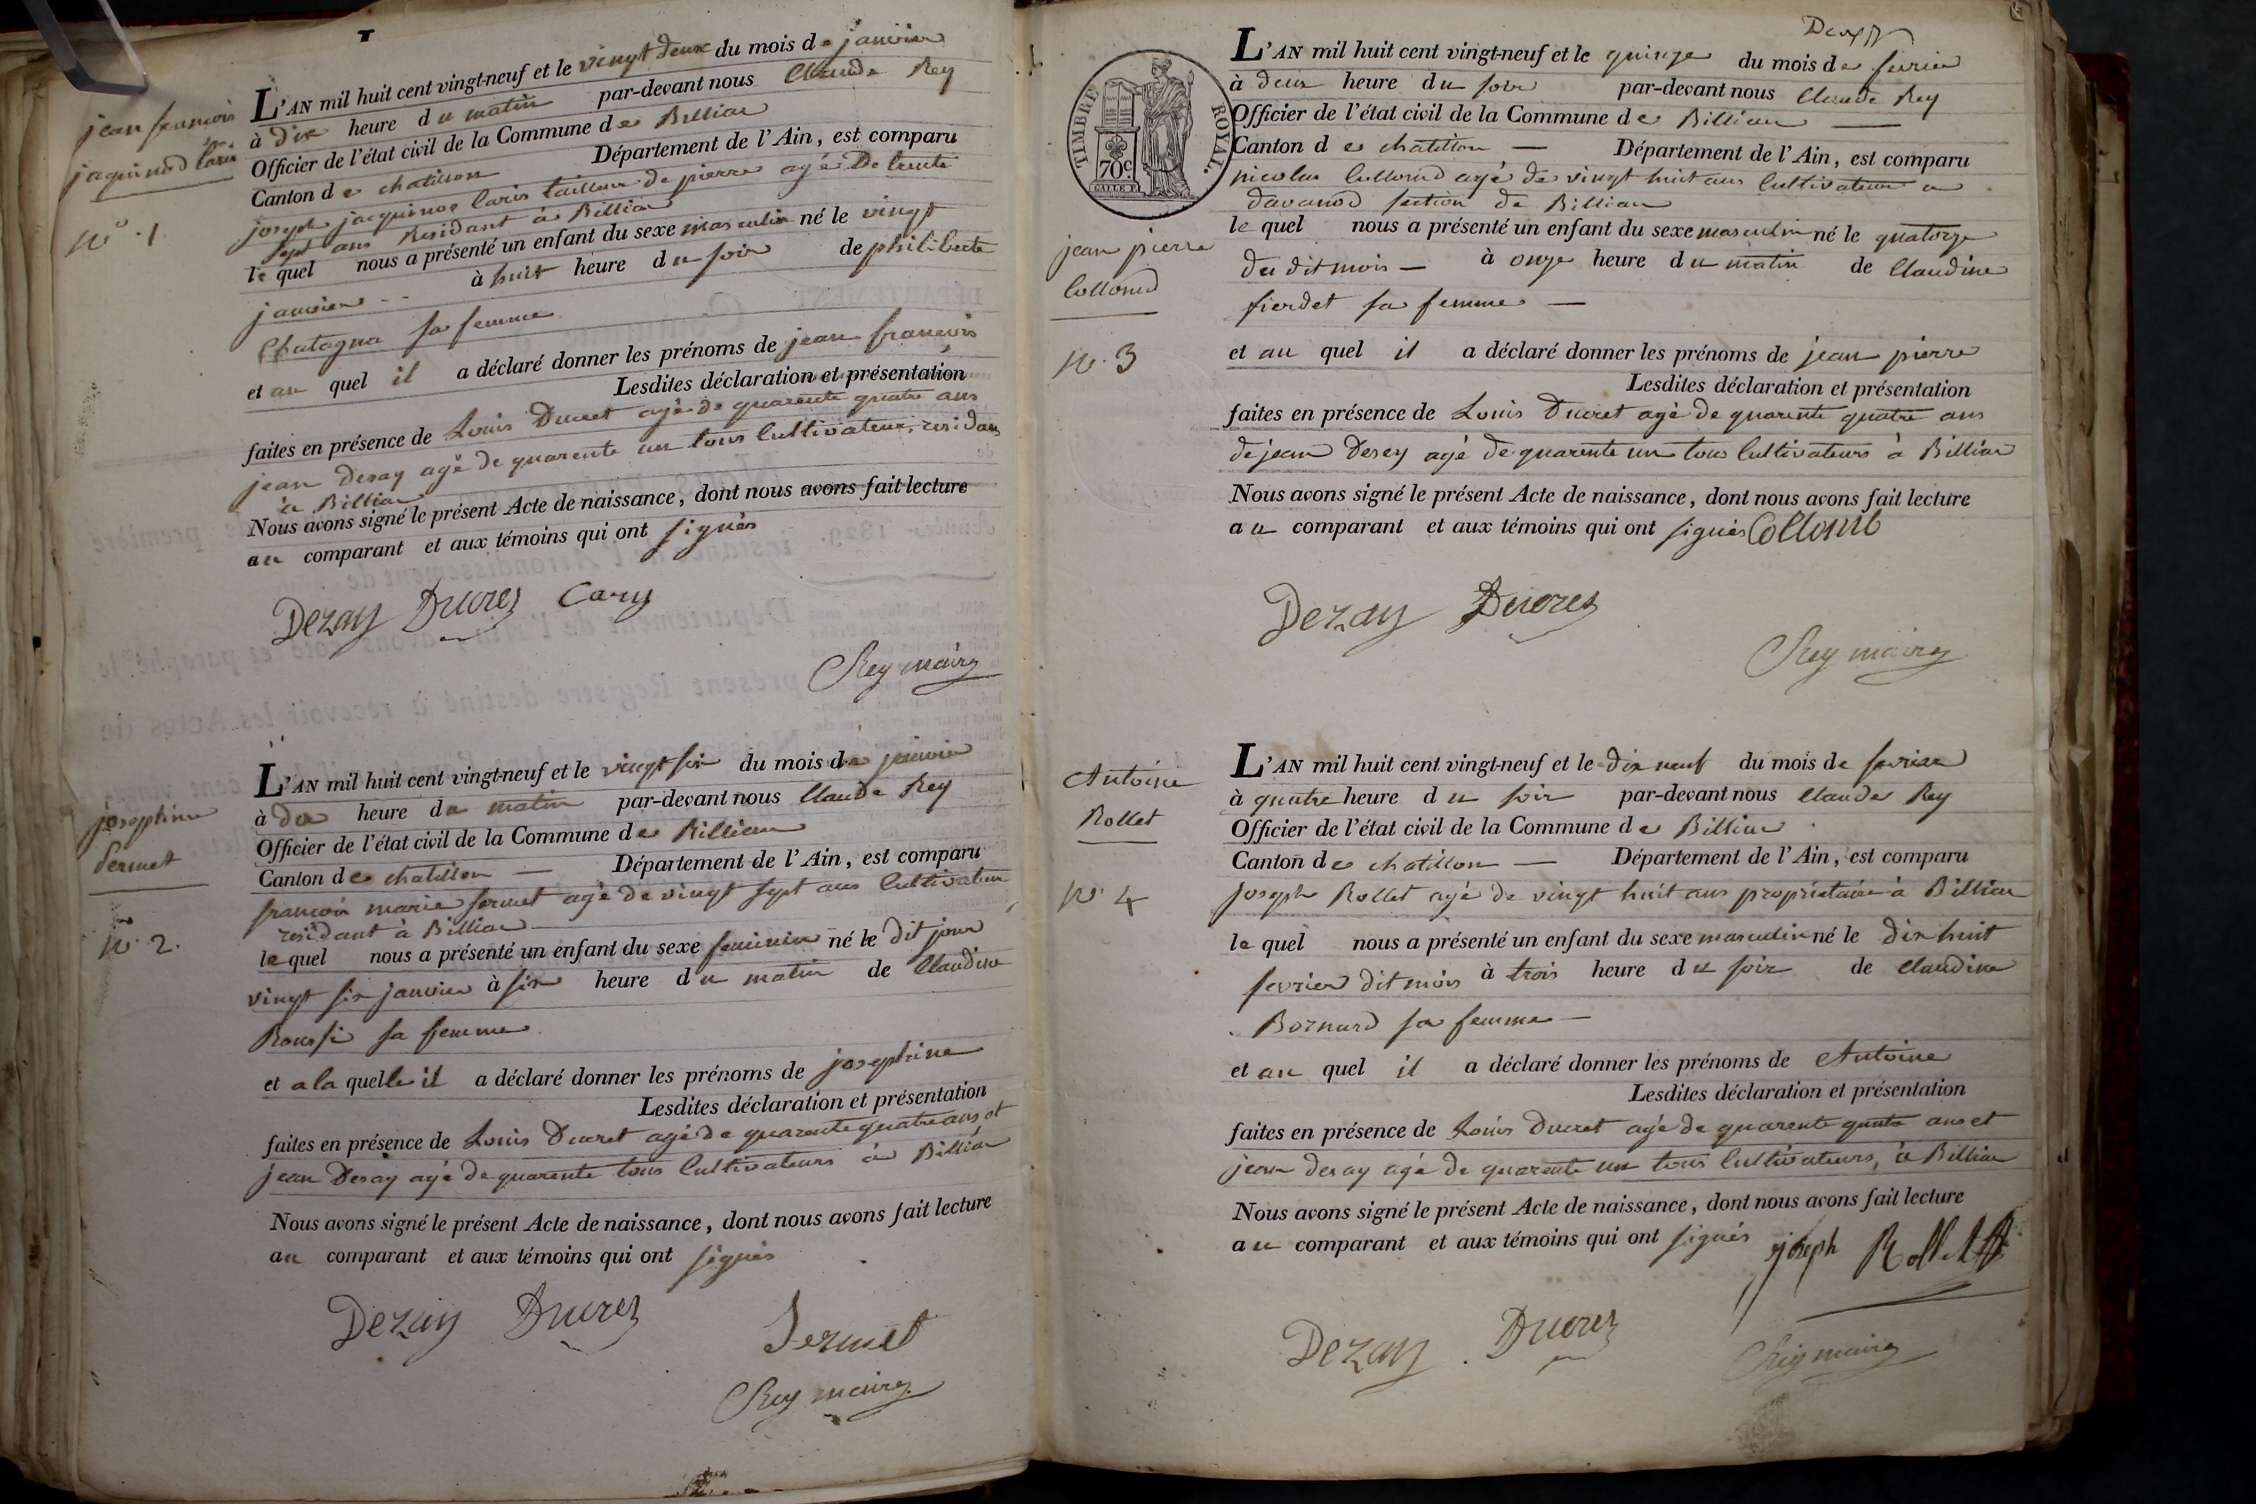 jean francois
jaquinod Caris
N° 1
L'AN mil huit cent vingt-neuf et le vingt deux du mois de janvier
à dix heure du matin par-devant nous Claude Rey
Officier de l'état civil de la Commune de Billiat
Canton de chatillon Département de l'Ain, est comparu
joseph jacquinod Caris tailleur de pierre agé De trente
sept ans Residant à Billiat
le quel nous a présenté un enfant du sexe masculin né le vingt
janvier à huit heure du soir de philiberte
Chatagna sa femme
et au quel il a déclaré donner les prénoms de jean francois
Lesdites déclaration et présentation
faites en présence de Louis Ducret agé de quarente quatre ans
jean Desay agé de quarente un tous Cultivateur, residans
à Billiat
Nous avons signé le présent Acte de naissance, dont nous avons fait lecture
au comparant et aux témoins qui ont signés
Dezay Ducrez Cary
Rey maire
josephine
fermet
N° 2.
L'AN mil huit cent vingt-neuf et le vingt six du mois de janvier
à dix heure du matin par-devant nous Claude Rey
Officier de l'état civil de la Commune de Billiat
Canton de chatillon Département de l'Ain, est comparu
francois marie fermet agé de vingt sept ans Cultivateur
residant à Billiat
le quel nous a présenté un enfant du sexe feminin né le dit jour
vingt six janvier à six heure du matin de Claudine
Roussi sa femme
et a la quelle il a déclaré donner les prénoms de josephine
Lesdites déclaration et présentation
faites en présence de Louis Ducret agé de quarente quatre ans et
jean Desay agé de quarente tous Cultivateurs à Billiat
Nous avons signé le présent Acte de naissance, dont nous avons fait lecture
au comparant et aux témoins qui ont signés
Dezay Ducrez Fermet
Rey maire
Deux
TIMBRE ROYAL.
70c
jean pierre
Collomb
N° 3
L'AN mil huit cent vingt-neuf et le quinze du mois de fevrier
à deux heure du soir par-devant nous Claude Rey
Officier de l'état civil de la Commune de Billiat
Canton de chatillon Département de l'Ain, est comparu
nicolas Collomb agé de vingt huit ans Cultivateur a
davanod section de Billiat
le quel nous a présenté un enfant du sexe masculin né le quatorze
du dit mois à onze heure du matin de Claudine
fierdet sa femme
et au quel il a déclaré donner les prénoms de jean pierre
Lesdites déclaration et présentation
faites en présence de Louis Ducret agé de quarente quatre ans
de jean Desey agé de quarente un tous Cultivateurs à Billiat
Nous avons signé le présent Acte de naissance, dont nous avons fait lecture
au comparant et aux témoins qui ont signés Collomb
Dezay Ducrez
Rey maire
Antoine
Rollet
N° 4
L'AN mil huit cent vingt-neuf et le dix neuf du mois de fevrier
à quatre heure du soir par-devant nous Claude Rey
Officier de l'état civil de la Commune de Billiat
Canton de chatillon Département de l'Ain, est comparu
Joseph Rollet agé de vingt huit ans propriétaire à Billiat
le quel nous a présenté un enfant du sexe masculin né le dix huit
fevrier dit mois à trois heure du soir de Claudine
Bornard sa femme
et au quel il a déclaré donner les prénoms de Antoine
Lesdites déclaration et présentation
faites en présence de Louis Ducret agé de quarente quatre ans et
jean desay agé de quarente un tous Cultivateurs, à Billiat
Nous avons signé le présent Acte de naissance, dont nous avons fait lecture
au comparant et aux témoins qui ont signés joseph Rollet
Dezay Ducrez
Rey maire